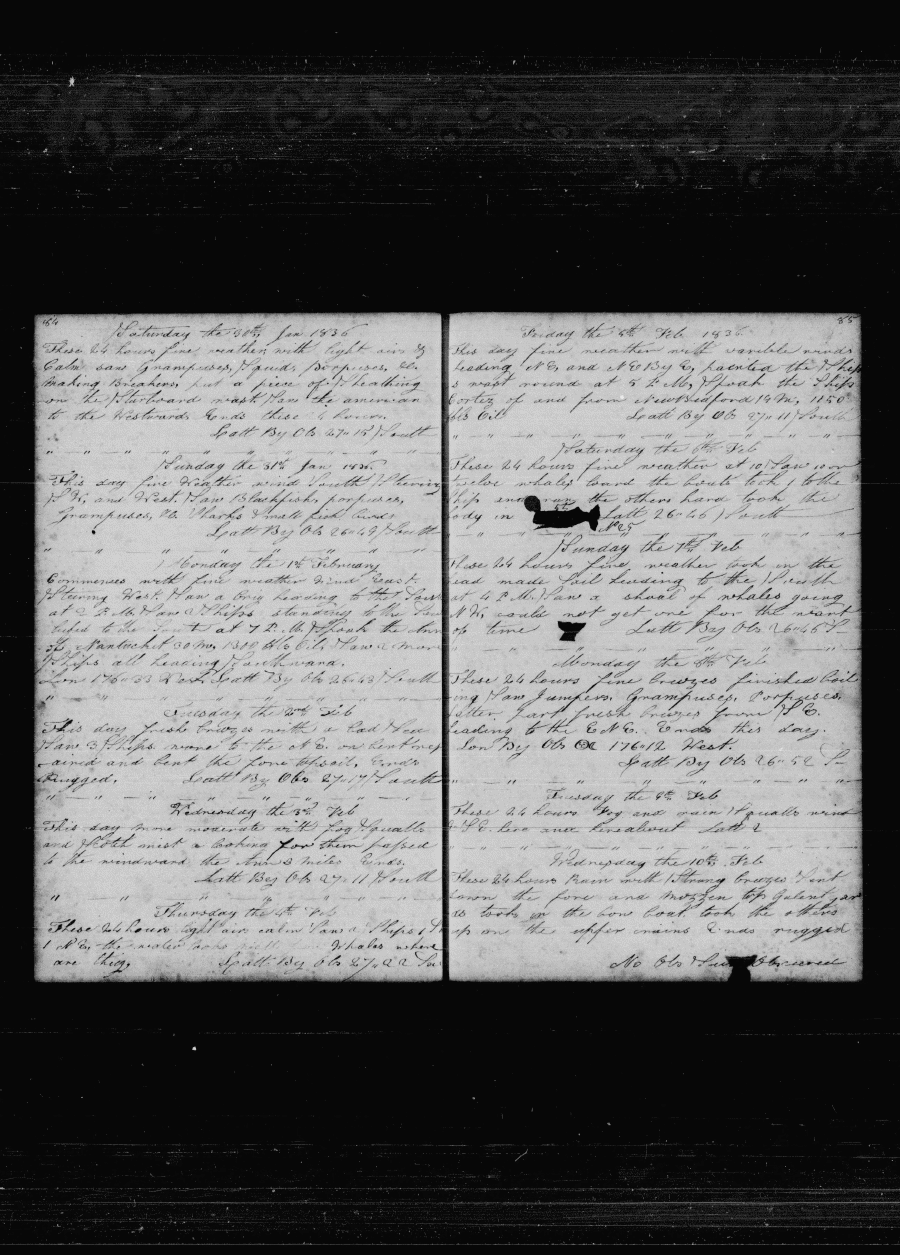 84
Saturday the 30th Jan 1836
These 24 hours fine weather with light airs &
Calm saw Grampuses, Squids Porpuses, &c.
Making Breahers, put a piece of Sheathing
on the Starboard wast Saw the american
to the Westward Ends these hours.
Latt By Obs 27"15 South
Sunday the 31st Jan 1836
This day fine Weather wind South Stering
S.W. and West. Saw Blackfish, porpuses,
Grampuses, &c Sharks small fish birds
Latt By Obs 26"49 South
Monday the 1st February
Commences with fine weather Wind East.
Stering West. Saw a brig heading to the
at 2 P.M. Saw 2 Ships standing to the
to the at 7 P.M. Spoak the Ann
of Nantucket 30 M, 1300 bbls Oil, Saw 2 more
Ships all heading Southward.
Lon 176"33 West Latt By Obs 26"43 South
Tuesday the 2nd Feb
This day fresh brezes with a bad Sea
Saw 3 Ships more to the N.E. on bent rep
aired and bent the fore topsail, Ends
Rugged. Latt By Obs 27"17 South
Wednesday the 3rd Feb
This day more moderate with fog Squalls
and Scotch mist a looking for them passed
to the windward the Ann 3 miles Ends.
Latt By Obs 27"11 South
Thursday the 4th Feb
These 24 hours light airs calm Saw 2 Ships
N.E. the Whales where
are they. Latt By Obs 27"22 So
85
Friday the 5th Feb 1836
This day fine weather with varible winds
heading N.E. and N.E By E, painted the Ship
s wast round at 5 P.M, Spoak the Ships
Cortez of and from NewBedford 18 M, 1150
bbls Oil Latt By Obs 27"11 South
Saturday the 6th Feb
These 24 hours fine weather at 10 Saw 10 or
twelve whales lowrd the boats took 1 to the
Ship and ran the others hard took the
body in Latt 26"46 South
No 25
Sunday the 7th Feb
These 24 hours fine weather took in the
head made Sail heading to the South
at 4 P.M. Saw a shoal of whales going
N.W. could not get one for the want
of time Latt By Obs 26"46 S
Monday the 8th Feb
These 24 hours fine brezes finished boil
ing Saw Jumpers, Grampuses, Porpuses.
latter part fresh brezes from S.E.
heading to the E N E. Ends this day.
Lon By Obs 176"12 West.
Latt By Obs 26"52 S
Tuesday the 9th Feb
These 24 hours Fog and rain Squalls wind
S.E. here and hereabout Latt 2
Wednesday the 10th Feb
These 24 hours Rain with Strong brezes Sent
down the fore and Mizzen top Galent yar
ds took in the bow boat took the others
up on the upper crains Ends rugged
No Obs Observed